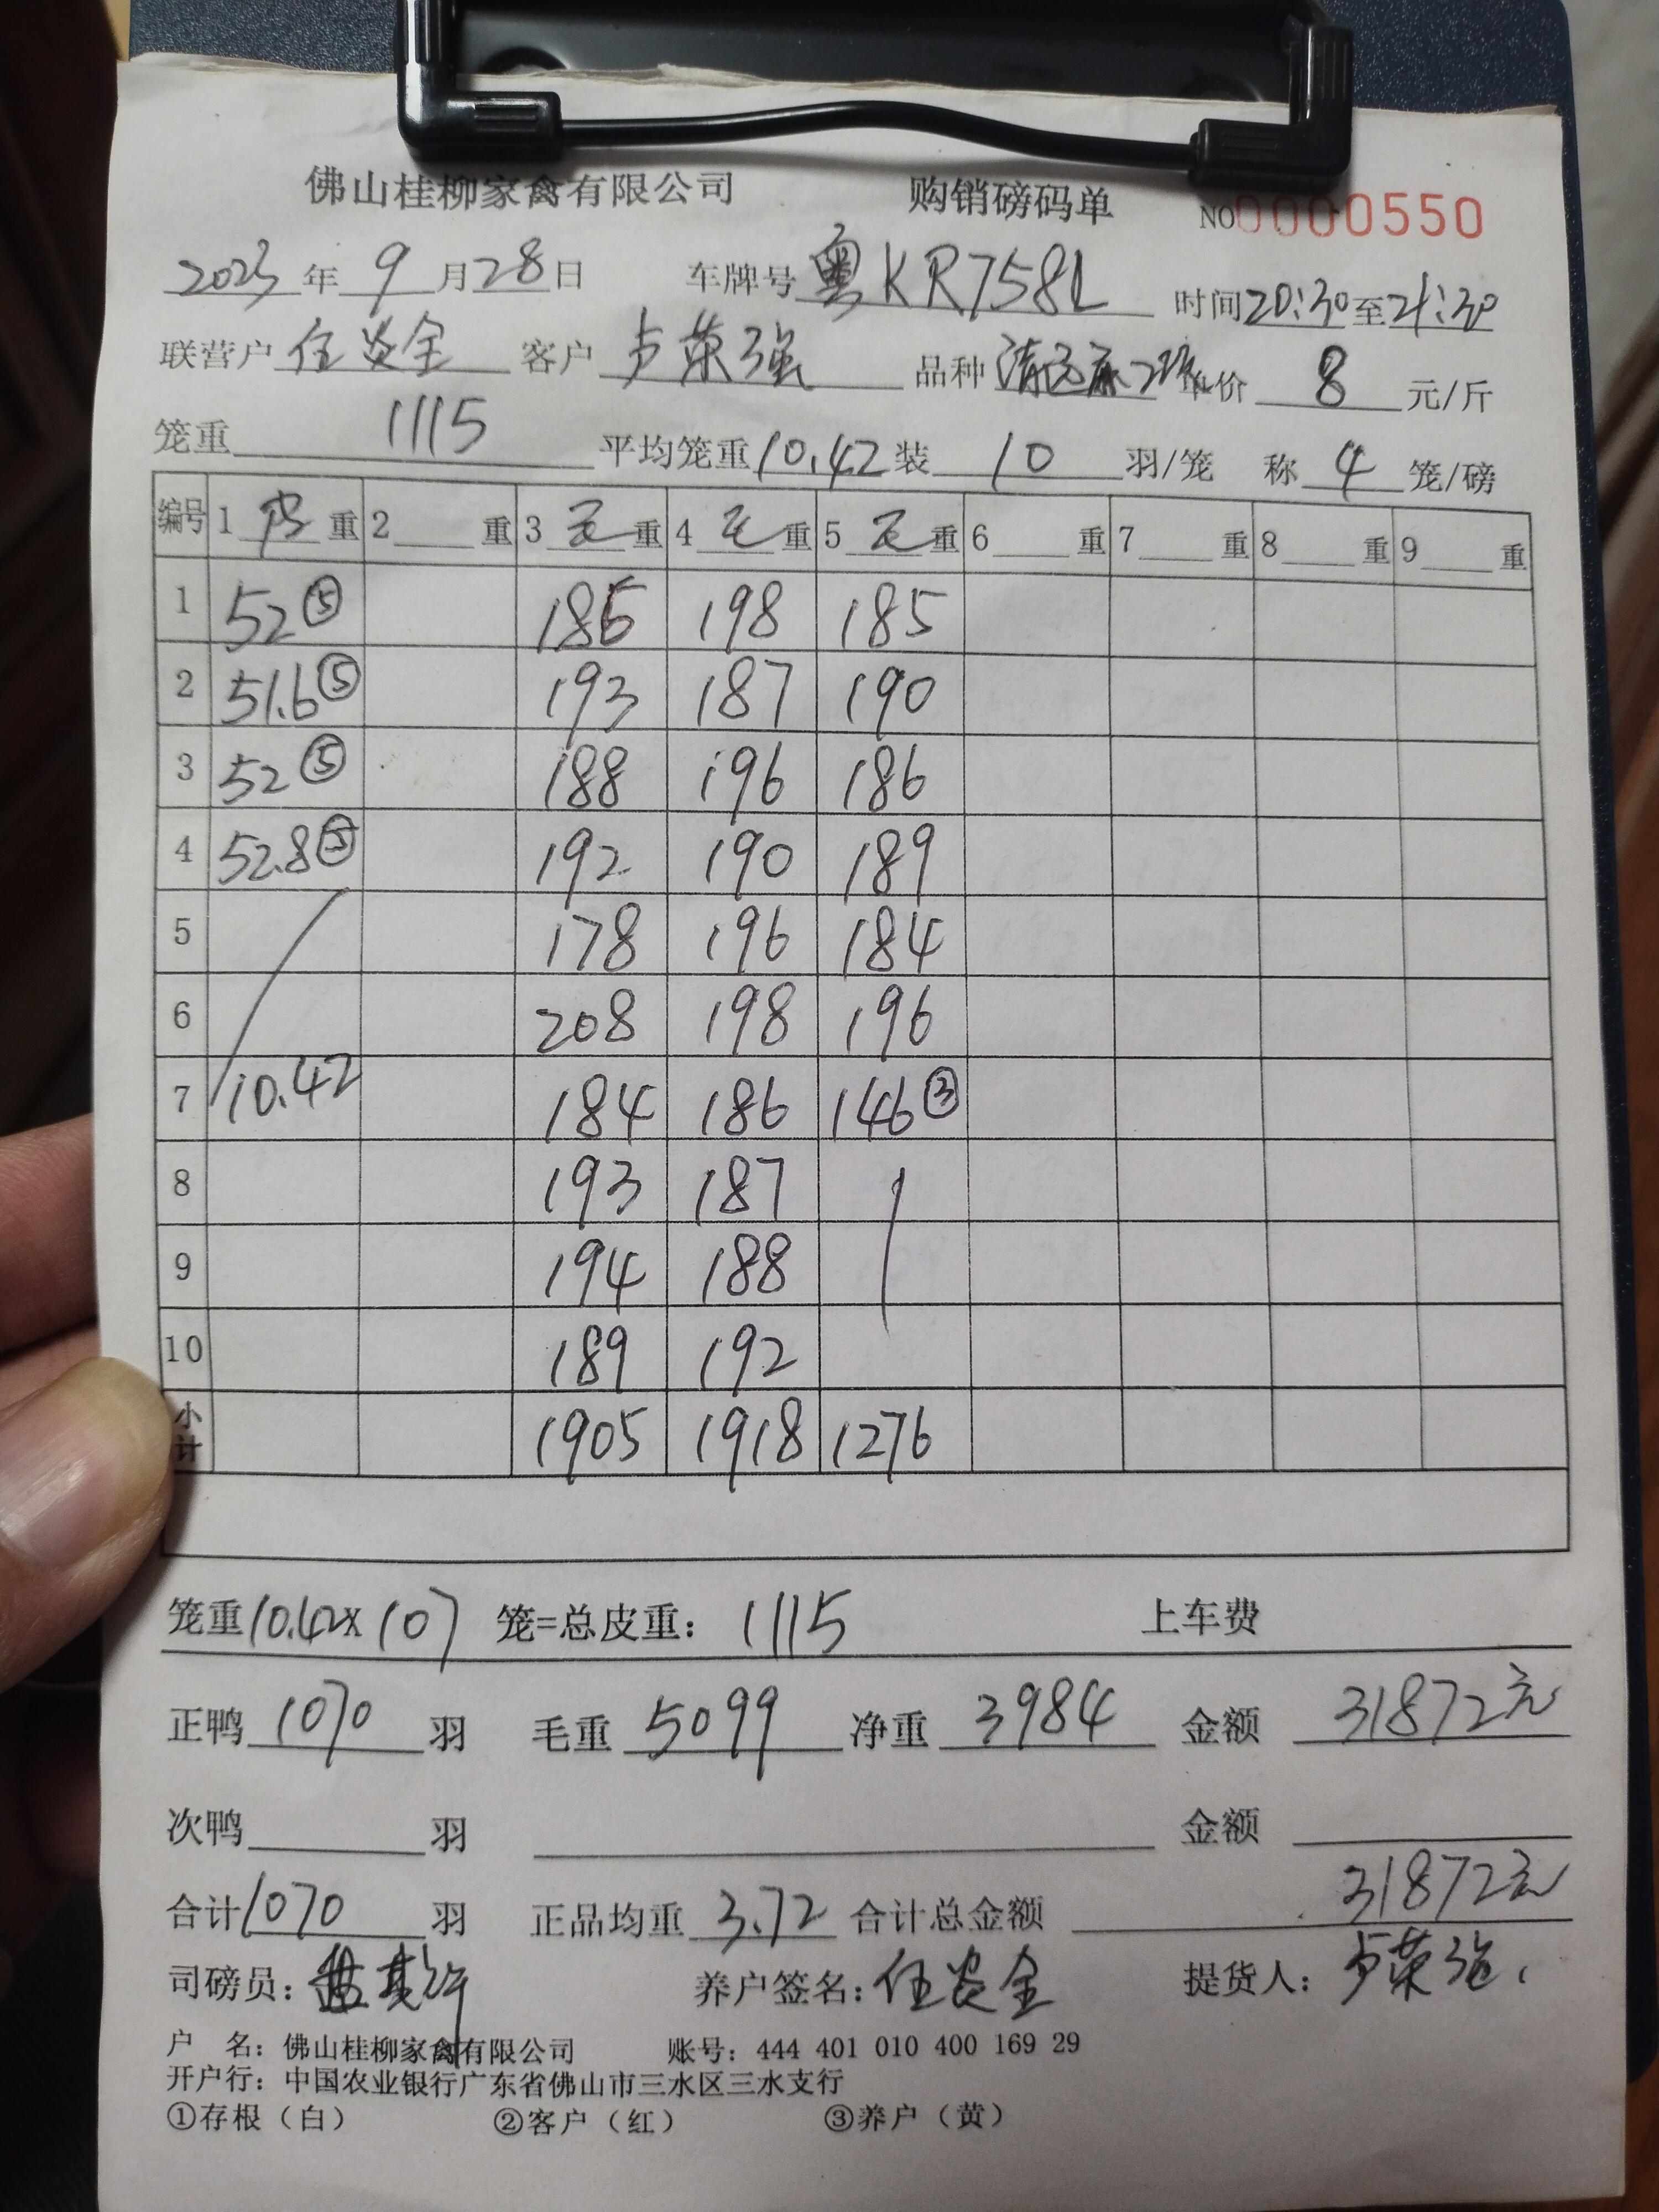 佛山桂柳家禽有限公司 购销磅码单 NO 0000550
2023年9月28日 车牌号 粤KR758L 时间20:30至21:30
联营户 任炎全 客户 卢荣强 品种 清远麻 单价 8 元/斤
笼重 1115 平均笼重10.42装 10 羽/笼 称 4 笼/磅
编号 1 皮 重 2 重 3 毛 重 4 毛 重 5 毛 重 6 重 7 重 8 重 9 重
1 52⑤ 186 198 185
2 51.6⑤ 193 187 190
3 52⑤ 188 196 186
4 52.8⑤ 192 190 189
5 178 196 184
6 208 198 196
7 10.42 184 186 146③
8 193 187
9 194 188
10 189 192
小计 1905 1918 1276
笼重10.42X107 笼=总皮重: 1115 上车费
正鸭 1070 羽 毛重 5099 净重 3984 金额 31872元
次鸭 羽 金额
合计1070 羽 正品均重 3.72 合计总金额 31872元
司磅员: 养户签名: 任炎全 提货人: 卢荣强
户 名: 佛山桂柳家禽有限公司 账号: 444 401 010 400 169 29
开户行: 中国农业银行广东省佛山市三水区三水支行
①存根（白） ②客户（红） ③养户（黄）